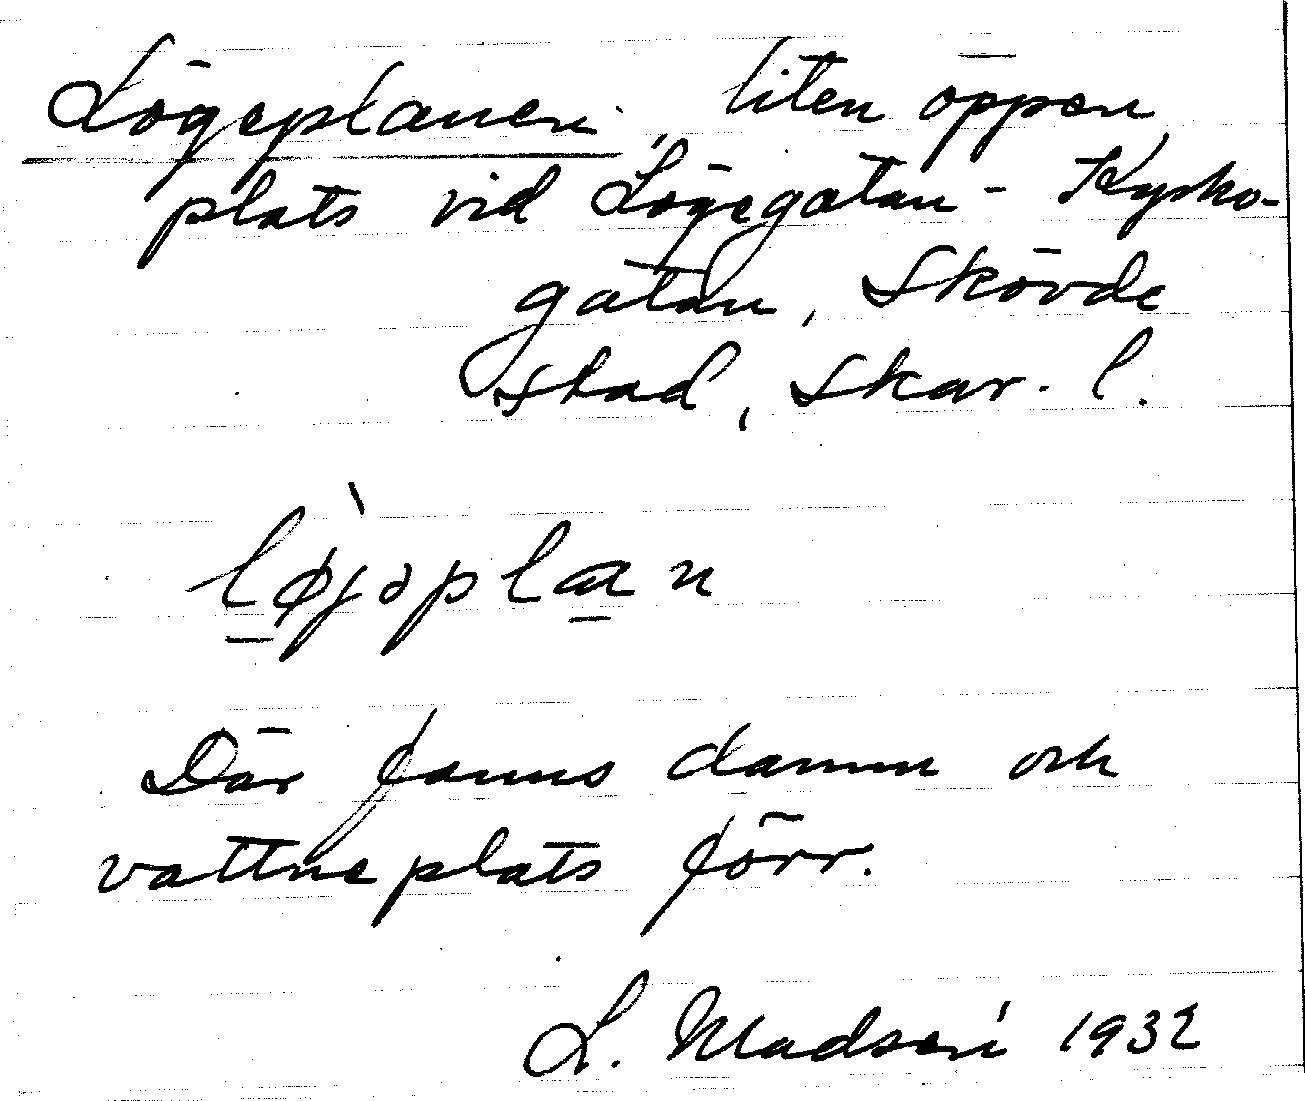 Lögeplanen, liten öppen
plats vid Lögegatan - Kyrko-
gatan, Skövde
stad, Skar. l.
løj̀əplan
Där fanns damm och
vattneplats förr.
L. Madsén 1932